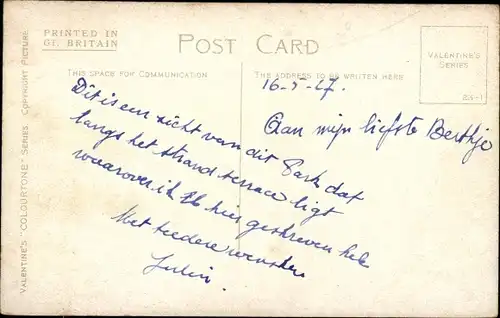 PRINTED IN
GT. BRITAIN
POST CARD
VALENTINE'S
SERIES
23-1
THIS SPACE FOR COMMUNICATION
THE ADDRESS TO BE WRITTEN HERE
VALENTINE'S "COLOURTONE" SERIES. COPYRIGHT PICTURE.
16-5-27.
Aan mijn liefste Berthje
Dit is een zicht van dit Park dat
langs het strand terrace ligt
waarover ik Ub hier geschreven heb
Met teedere wenschen